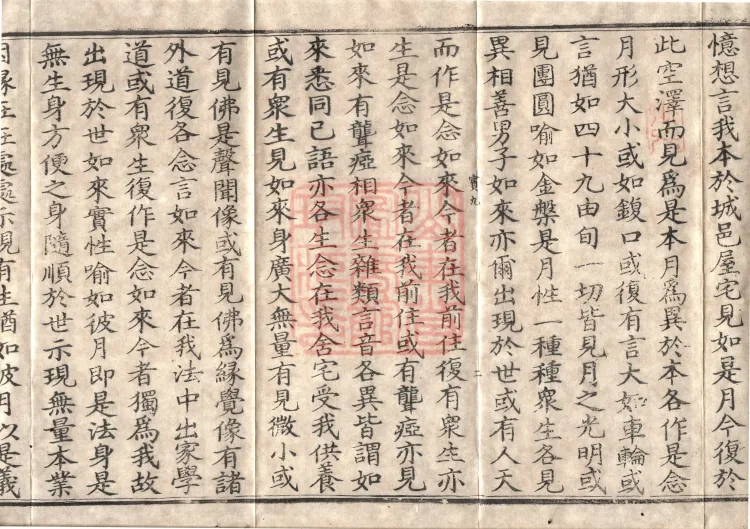 憶想言我本於城邑屋宅見如是月今復於
此空澤而見為是本月為異於本各作是念
月形大小或如鍑口或復有言大如車輪或
言猶如四十九由旬一切皆見月之光明或
見團圓喻如金盤是月性一種種眾生各見
異相善男子如來亦爾出現於世或有人天
而作是念如來今者在我前住復有眾生亦
生是念如來今者在我前住或有聾瘂亦見
如來有聾瘂相眾生雜類言音各異皆謂如
來悉同己語亦各生念在我舍宅受我供養
或有眾生見如來身廣大無量有見微小或
有見佛是聲聞像或有見佛為緣覺像有諸
外道復各念言如來今者在我法中出家學
道或有眾生復作是念如來今者獨為我故
出現於世如來實性喻如彼月即是法身是
無生身方便之身隨順於世示現無量本業
因緣在在處處示現有生猶如彼月以是義
賓九
二